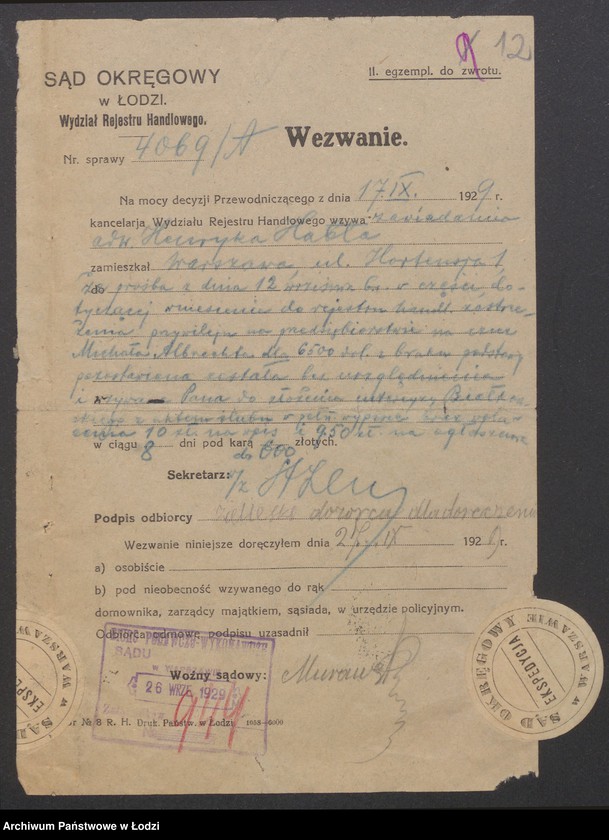 12
II. egzempl. do zwrotu.
SĄD OKRĘGOWY
w ŁODZI.
Wydział Rejestru Handlowego.
Nr. sprawy 4069/A
Wezwanie.
Na mocy decyzji Przewodniczącego z dnia 17.IX. 1929 r.
kancelarja Wydziału Rejestru Handlowego wzywa zawiadamia
adw. Henryka Habla
zamieszkał Warszawa, ul. Hortensja 1
do że prośba z dnia 12 września br. w części do-
tyczącej wniesienia do rejestru handl. zastrze-
żenia na przedsiębiorstwie na rzecz
Michała Albrechta dla 6500 dol. z braku podstawy
pozostawiona została bez uwzględnienia
i wzywa Pana do złożenia
z aktem ślubu w oraz
10 zł. na wpis i 9.50 zł. na ogłoszenie
w ciągu 8 dni pod karą do 600 złotych.
Sekretarz:
Podpis odbiorcy dozorca dla doręczenia
Wezwanie niniejsze doręczyłem dnia IX 192 r.
a) osobiście
b) pod nieobecność wzywanego do rąk
domownika, zarządcy majątkiem, sąsiada, w urzędzie policyjnym.
Odbiorca odmowę podpisu uzasadnił
SĄDU
w WARSZAWIE
26 WRZE. 1929
Woźny sądowy:
Nr № 8 R. H. Druk. Państw. w Łodzi 1058—6000
SĄD OKRĘGOWY w WARSZAWIE
EKSPEDYCJA
w WARSZAWIE
EKSPEDYCJA
Archiwum Państwowe w Łodzi